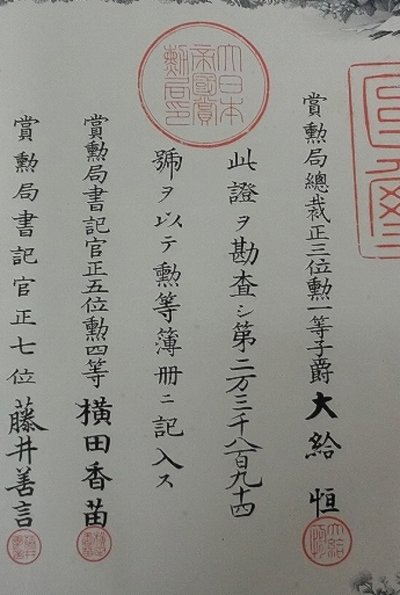 賞勲局總裁正三位勲一等子爵大給恒
此證ヲ勘査シ第二万三千八百九十四
號ヲ以テ勲等簿冊ニ記入ス
大日本
帝國賞
勲局印
賞勲局書記官正五位勲四等横田香苗
賞勲局書記官正七位藤井善言